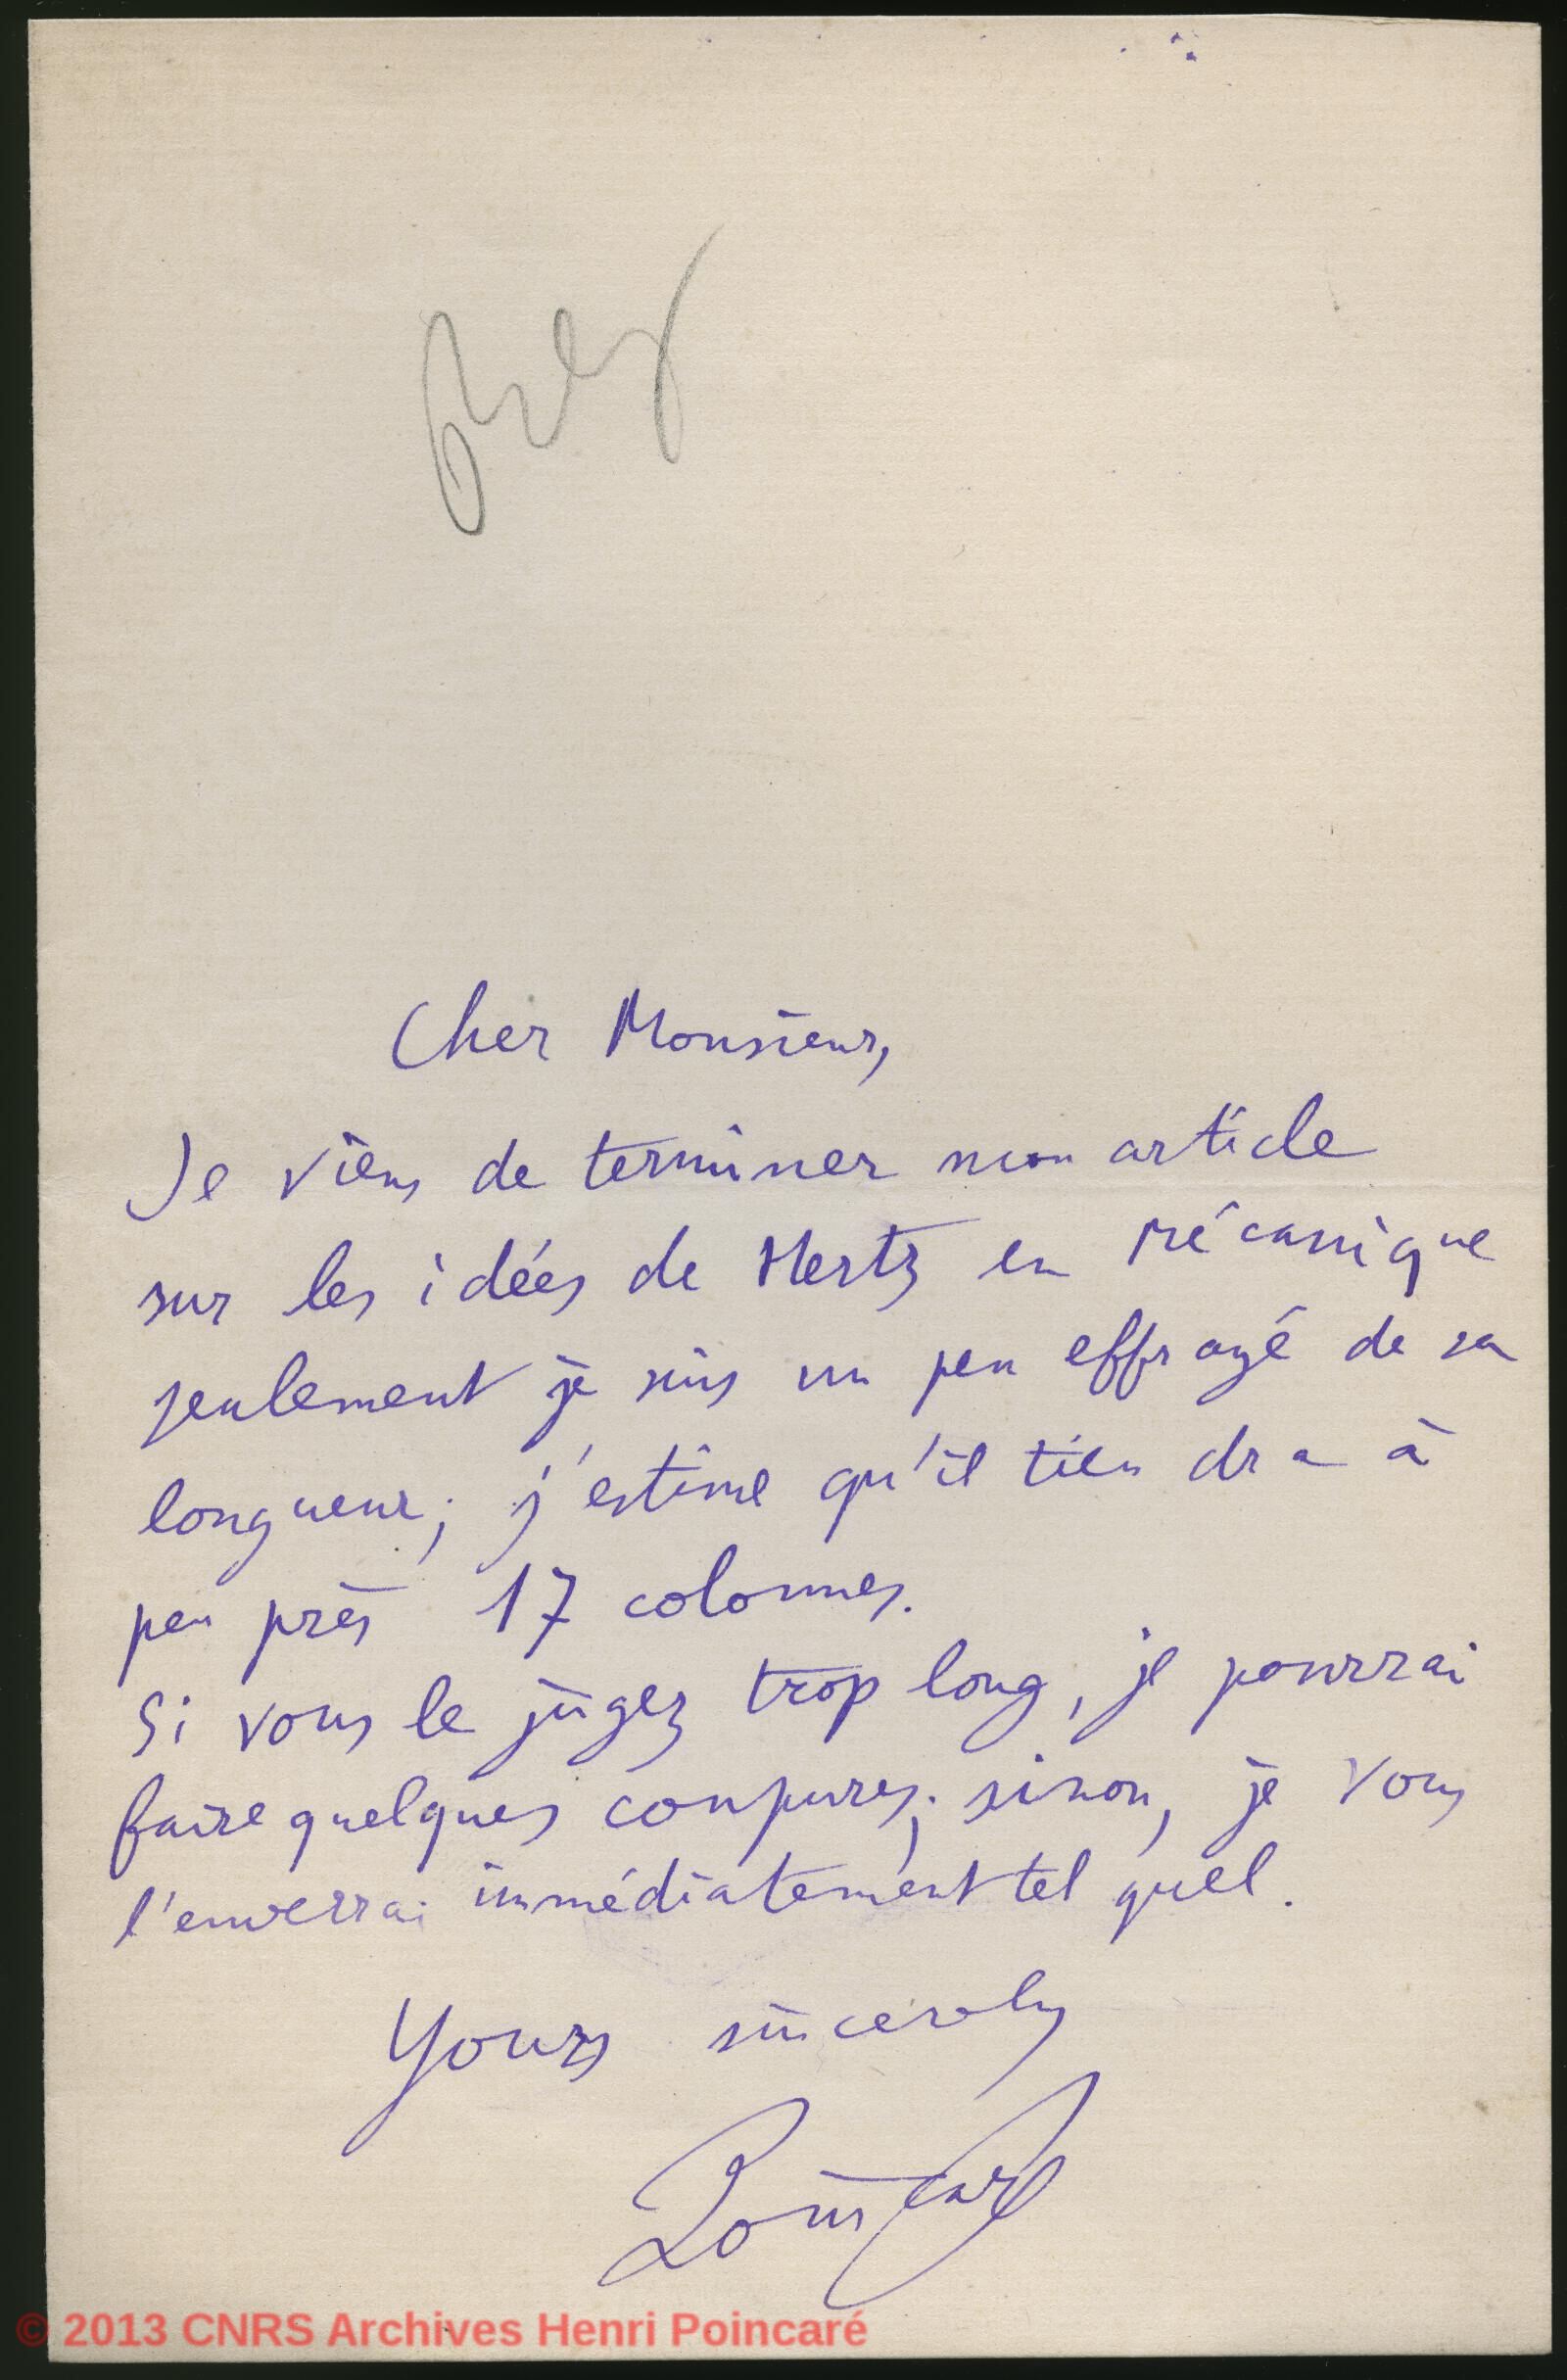 Cher Monsieur,
Je viens de terminer mon article
sur les idées de Hertz en Mécanique
seulement je suis un peu effrayé de sa
longueur; j'estime qu'il tiendra à
peu près 17 colonnes.
Si vous le jugez trop long, je pourrai
faire quelques coupures; sinon, je vous
l'enverrai immédiatement tel quel.
Yours sincerely
Poincaré
© 2013 CNRS Archives Henri Poincaré